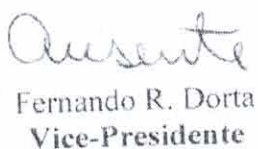 ausente
Fernando R. Dorta
Vice-Presidente